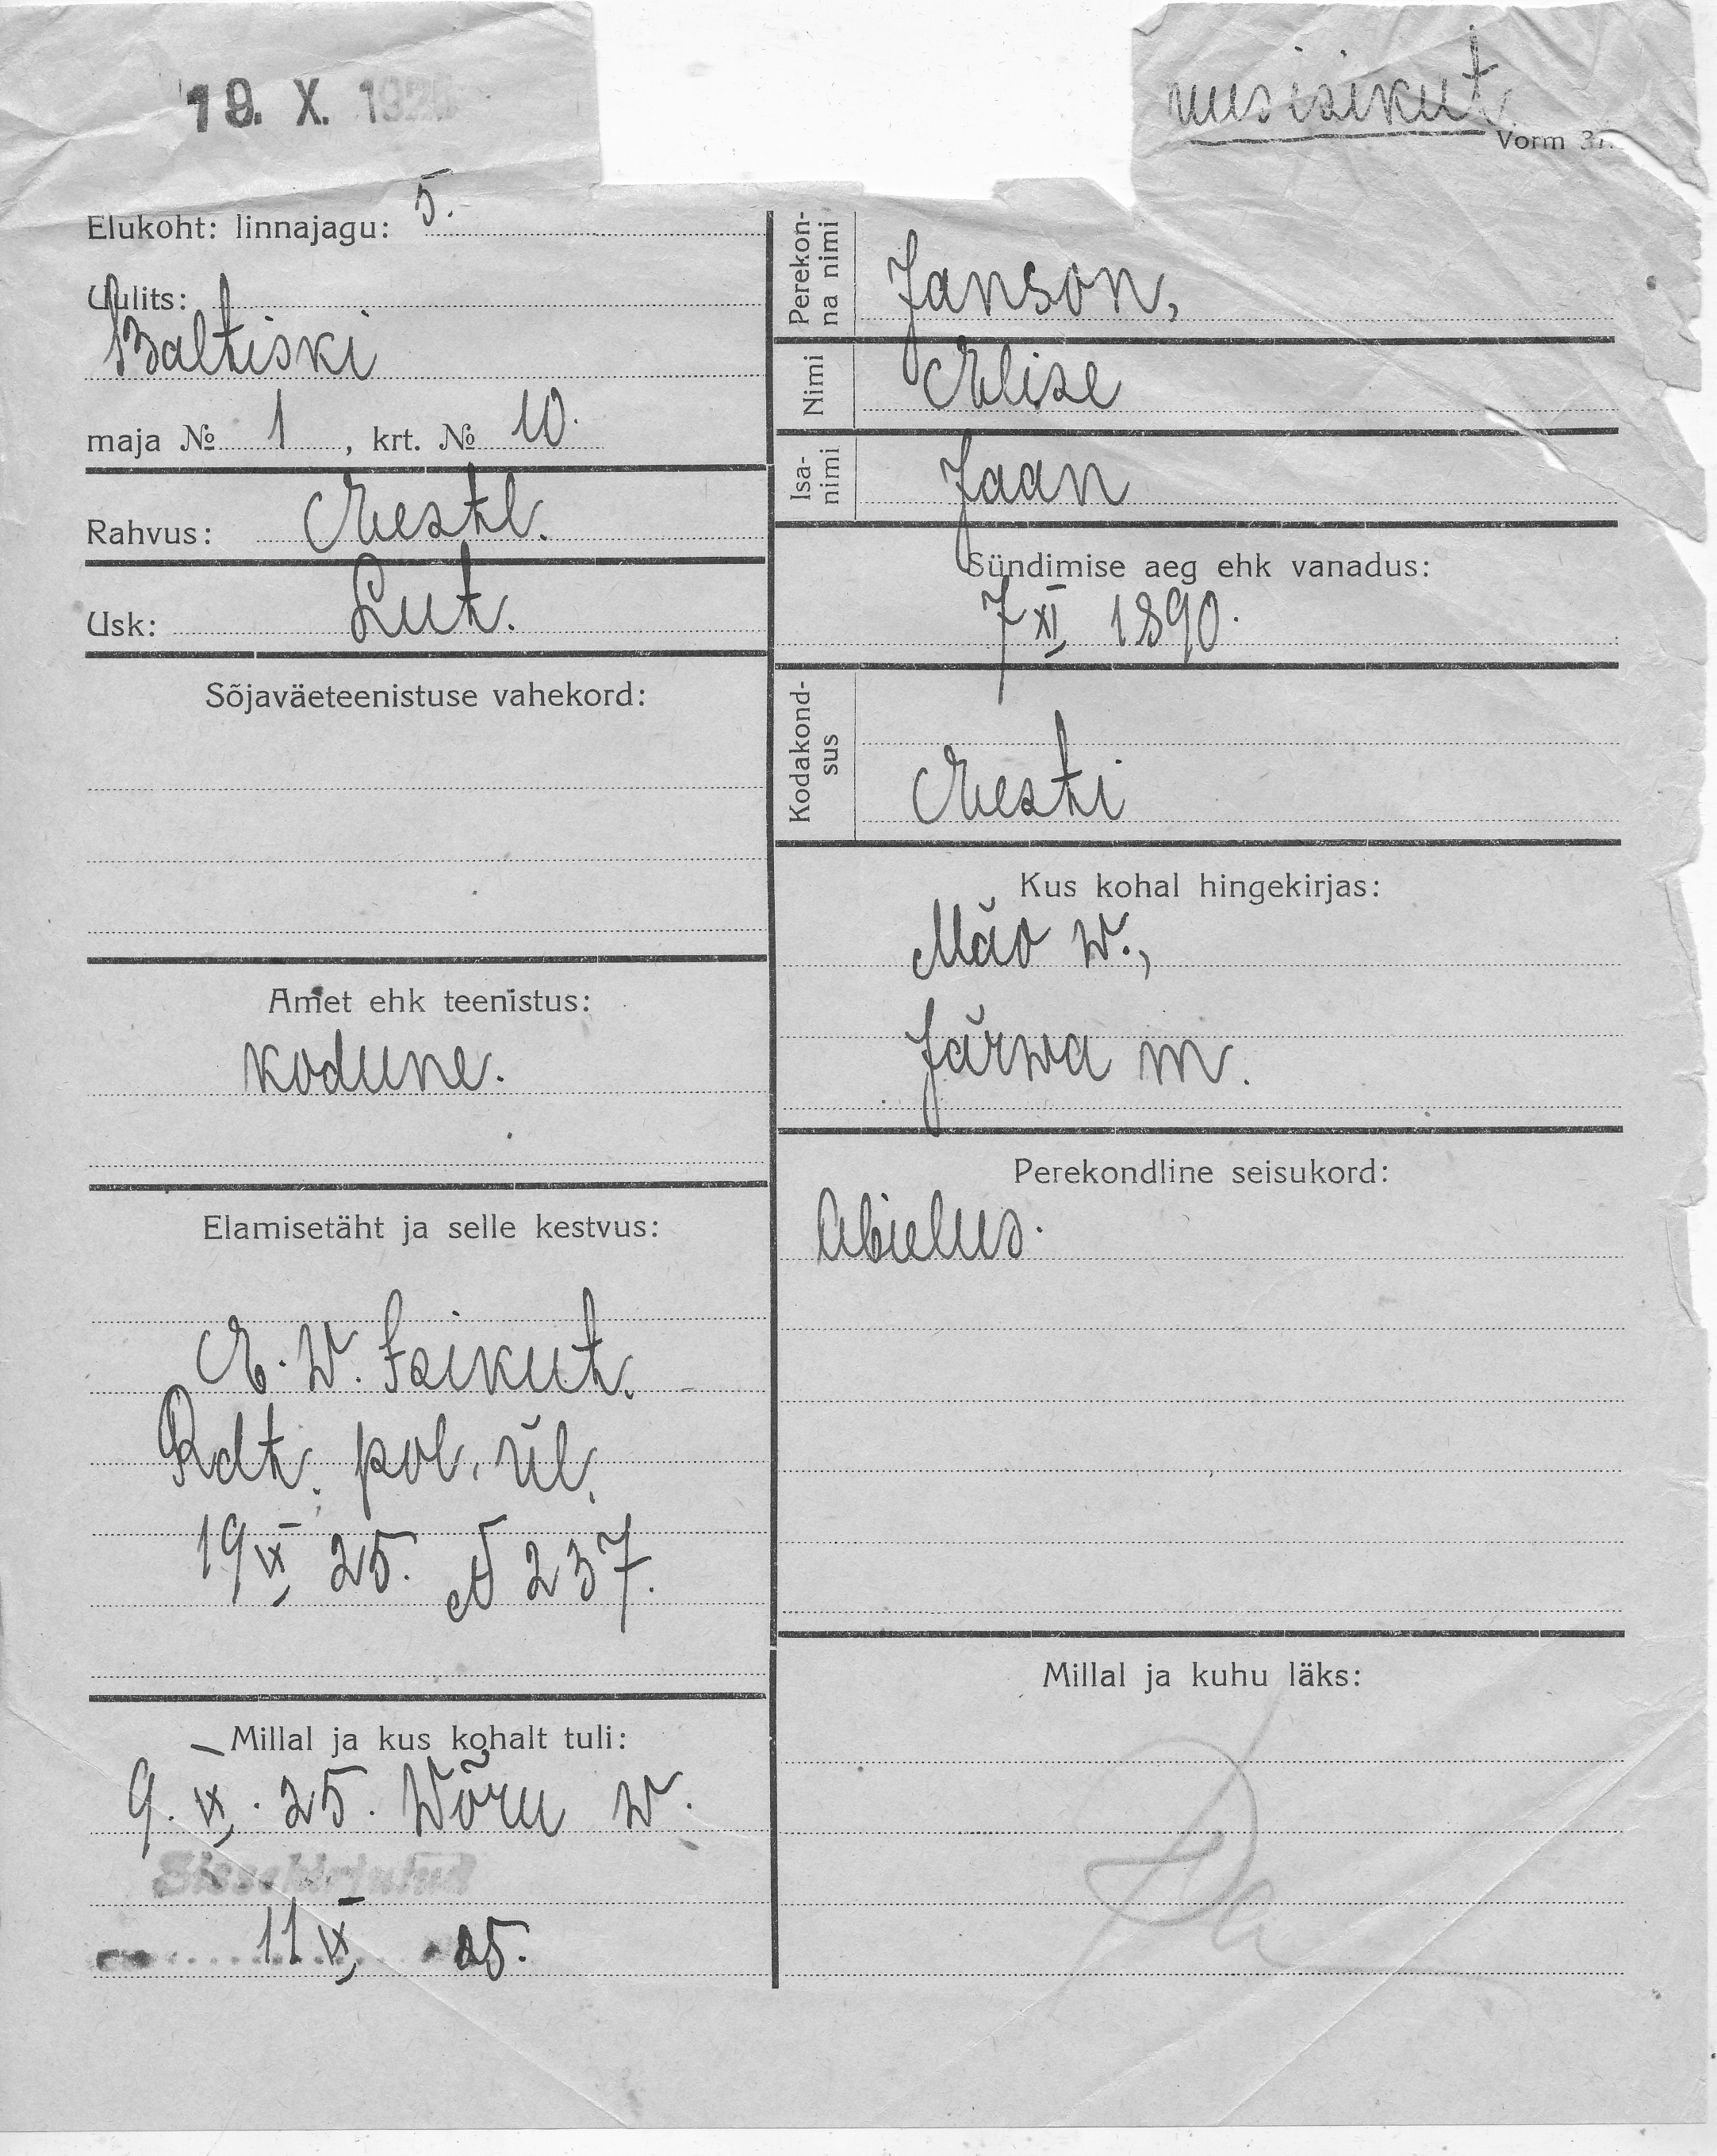 19. X. 192
uus isikut.
Vorm 31.
Elukoht: linnajagu: 5.
Uulits:
Baltiski
maja № 1, krt. № 10.
Rahvus: Eestl.
Usk: Lut.
Sõjaväeteenistuse vahekord:
Amet ehk teenistus:
kodune.
Elamisetäht ja selle kestvus:
E. W. Isikut.
Rdt. pol. ül.
19 IX 25. № 237.
Millal ja kus kohalt tuli:
9. IX. 25. Wõru w.
Sissekirjutud
11 IX 25.
Perekonna nimi
Janson,
Nimi
Elise
Isanimi
Jaan
Sündimise aeg ehk vanadus:
7 XI 1890.
Kodakondsus
Eesti
Kus kohal hingekirjas:
Mäo w.,
Järwa m.
Perekondline seisukord:
Abielus.
Millal ja kuhu läks: